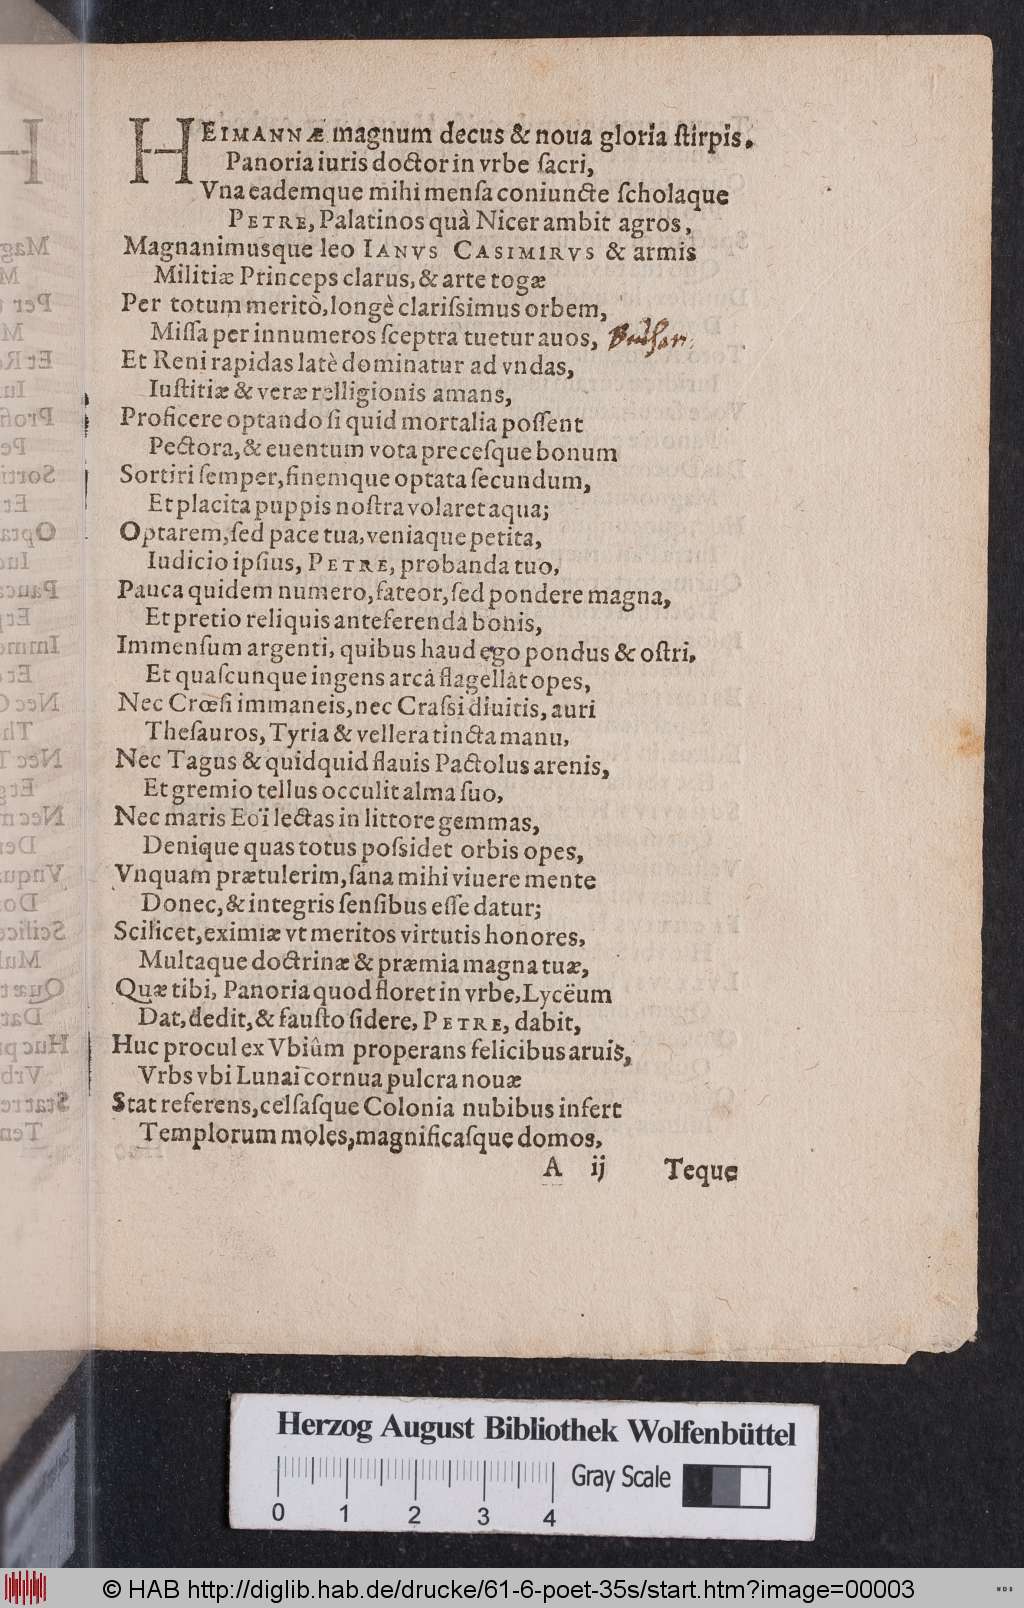 HEIMANNÆ magnum decus & noua gloria ſtirpis,
Panoria iuris doctor in vrbe ſacri,
Vna eademque mihi menſa coniuncte ſcholaque
PETRE, Palatinos quà Nicer ambit agros,
Magnanimusque leo IANVS CASIMIRVS & armis
Militiæ Princeps clarus, & arte togæ
Per totum meritò, longè clariſsimus orbem,
Miſſa per innumeros ſceptra tuetur auos,
Et Reni rapidas latè dominatur ad vndas,
Iuſtitiæ & veræ relligionis amans,
Proficere optando ſi quid mortalia poſſent
Pectora, & euentum vota preceſque bonum
Sortiri ſemper, finemque optata ſecundum,
Et placita puppis noſtra volaret aqua;
Optarem, ſed pace tua, veniaque petita,
Iudicio ipſius, PETRE, probanda tuo,
Pauca quidem numero, fateor, ſed pondere magna,
Et pretio reliquis anteferenda bonis,
Immenſum argenti, quibus haud ego pondus & oſtri,
Et quaſcunque ingens arcâ flagellat opes,
Nec Crœſi immaneis, nec Craſsi diuitis, auri
Theſauros, Tyria & vellera tincta manu,
Nec Tagus & quidquid flauis Pactolus arenis,
Et gremio tellus occulit alma ſuo,
Nec maris Eoï lectas in littore gemmas,
Denique quas totus poſsidet orbis opes,
Vnquam prætulerim, ſana mihi viuere mente
Donec, & integris ſenſibus eſſe datur;
Scilicet, eximiæ vt meritos virtutis honores,
Multaque doctrinæ & præmia magna tuæ,
Quæ tibi, Panoria quod floret in vrbe, Lycëum
Dat, dedit, & fauſto ſidere, PETRE, dabit,
Huc procul ex Vbiûm properans felicibus aruis,
Vrbs vbi Lunai cornua pulcra nouæ
Stat referens, celſaſque Colonia nubibus infert
Templorum moles, magnificaſque domos,
A ij Teque
Herzog August Bibliothek Wolfenbüttel
Gray Scale
0 1 2 3 4
© HAB http://diglib.hab.de/drucke/61-6-poet-35s/start.htm?image=00003